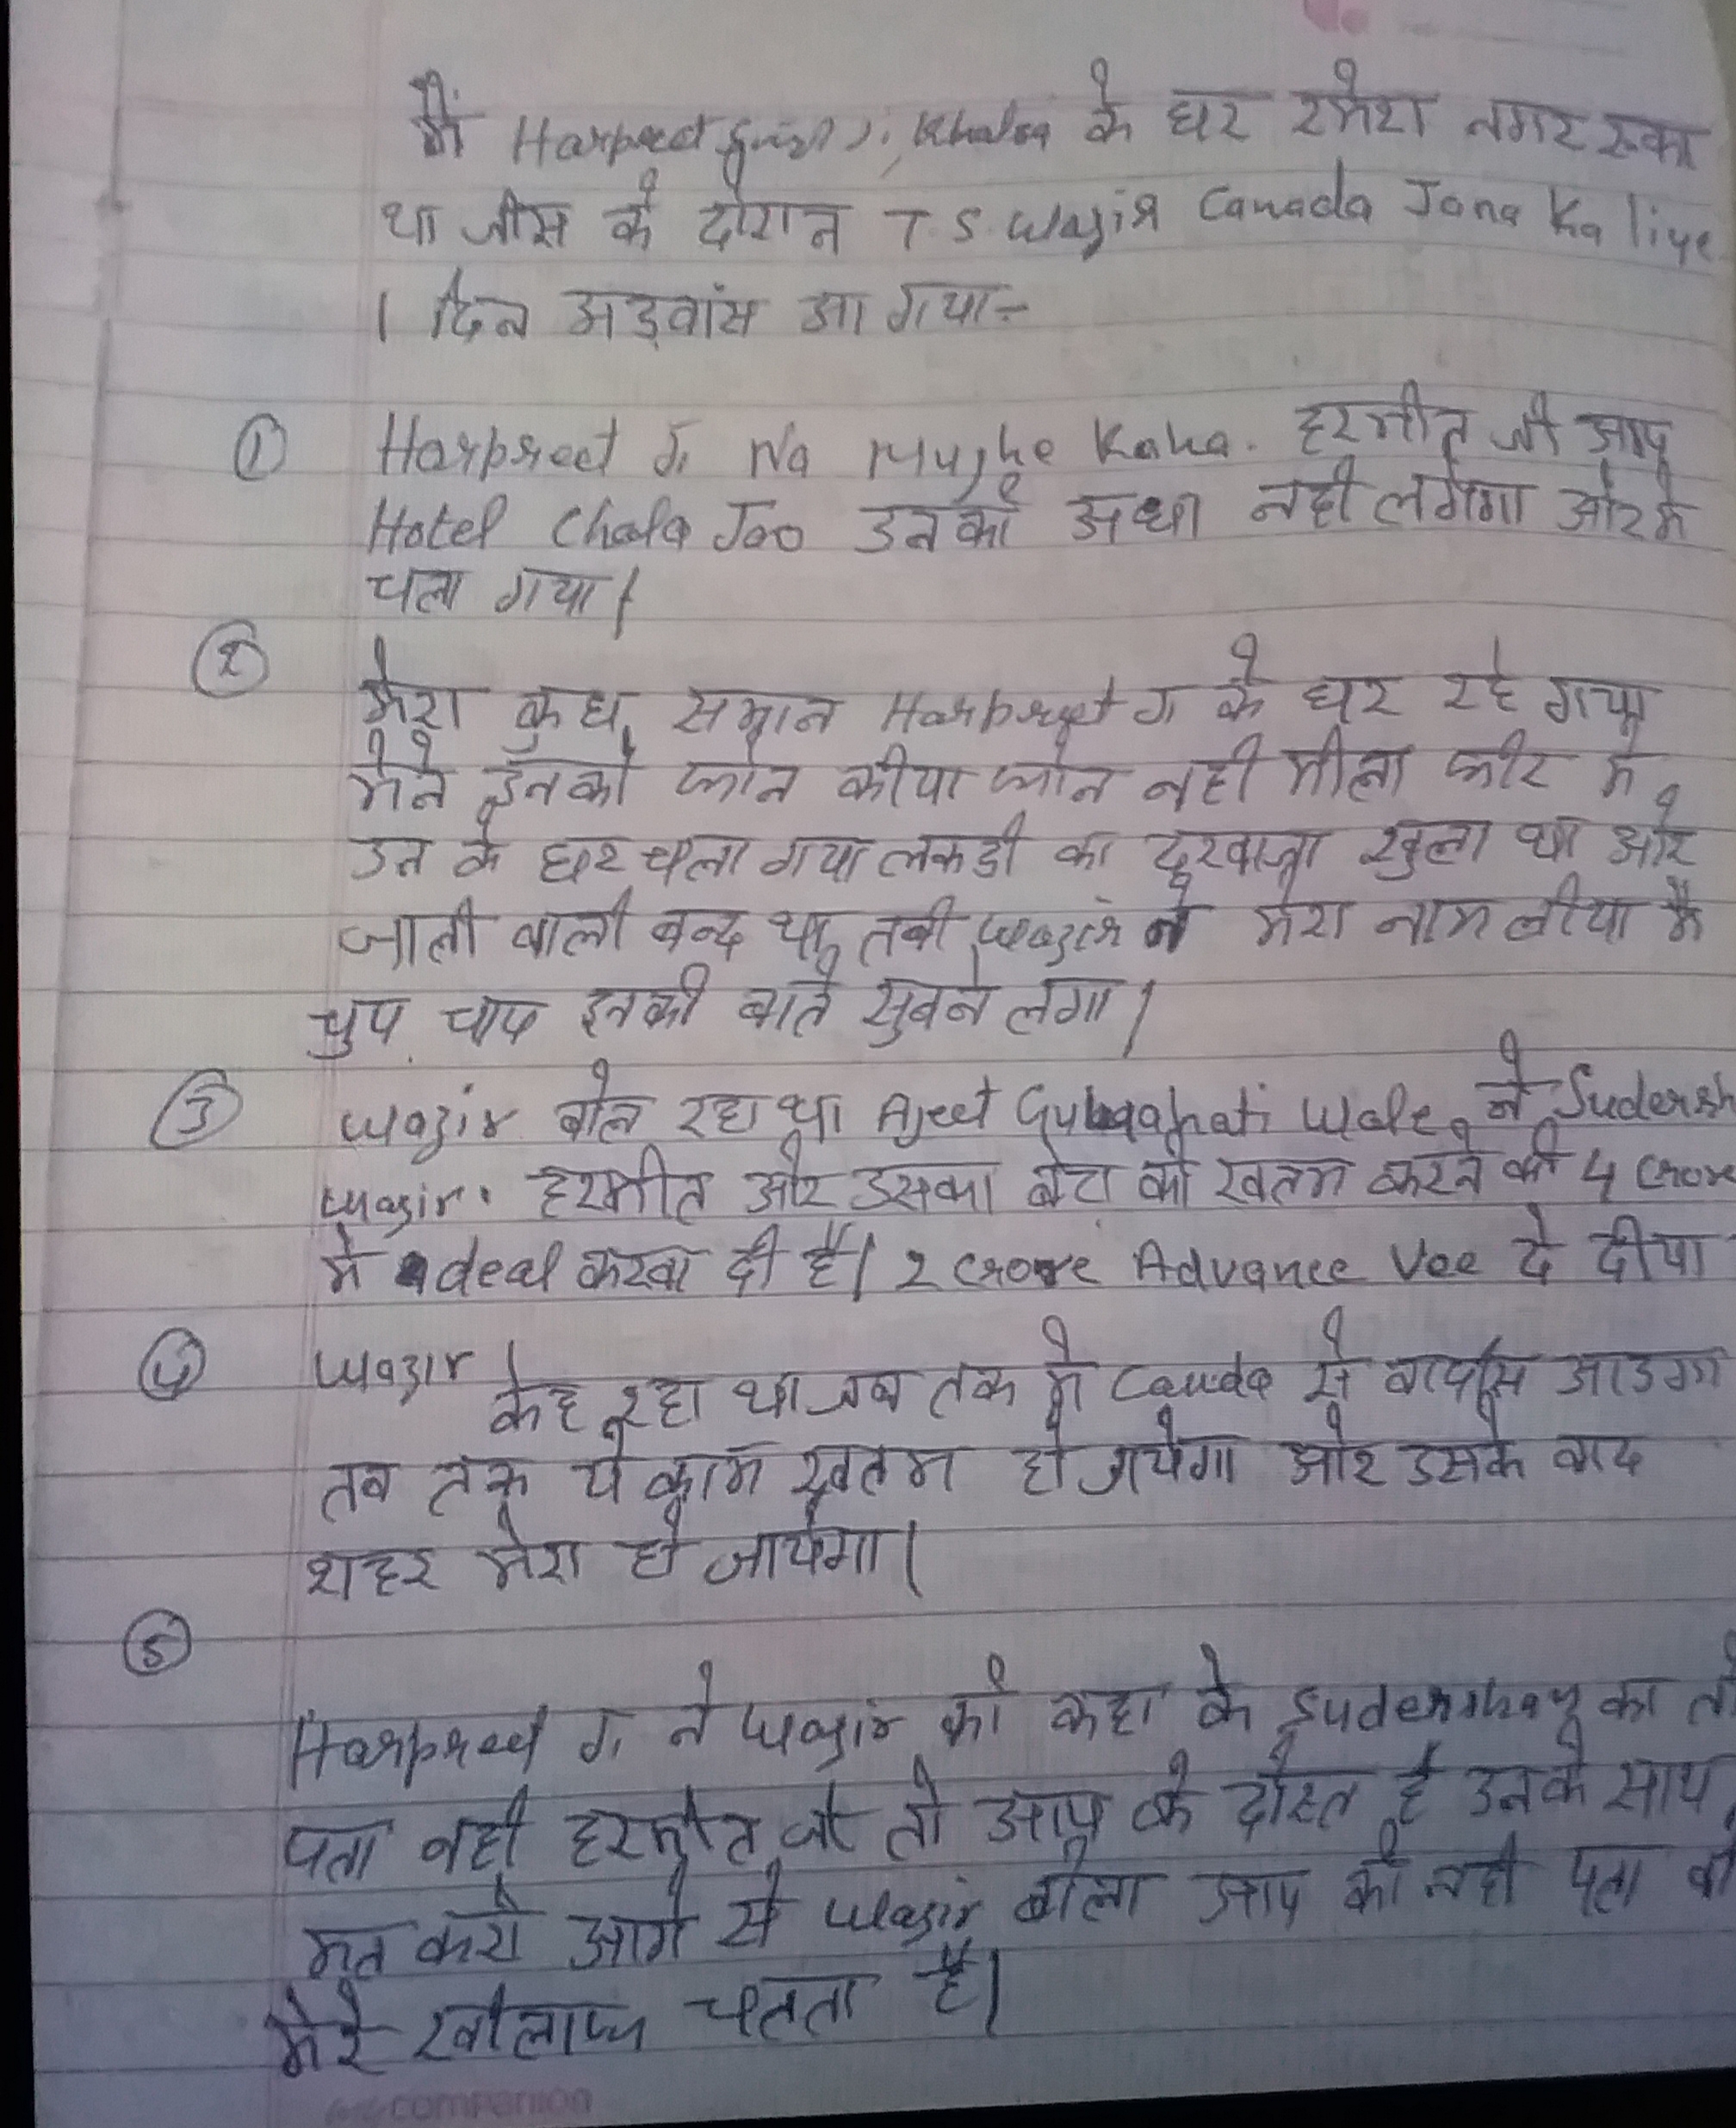 मैं Harpreet Singh Ji Khalsa के घर रमेश नगर रुका
था जीस के दोरान T.S. Wazir Canada Jana Ka liye
1 दिन अडवांस आ गया-
① Harpreet Ji Na Mujhe Kaha. हरमीत जी आप
Hotel Chala Jao उनको अछा नही लगेगा ओर मे
चला गया।
② मेरा कुछ समान Harpreet Ji के घर रहे गया
मेने इनको फोन कीया फोन नही मीला फीर मे
उन के घर चला गया लकडी का दरवाजा खुला था ओर
जाली वाली बन्द था तबी Wazir ने मेरा नाम लीया मै
चुप चाप इनकी बाते सुनने लगा।
③ Wazir बोल रहा था Ajeet Wale ने Sudersh
Wazir. हरमीत ओर उसका बेटा को खतम करने की 4 Crore
मे deal करवा दी है। 2 Crore Advance Vee दे दीया
④ Wazir
केह रहा था जब तक मे Canda से वापीस आउगा
तब तक ये काम खतम हो जयेगा ओर उसके बाद
शहर मेरा हो जायेगा।
⑤
Harpreet Ji ने Wazir को कहा के Sudershan का तो
पता नही हरमीत जी तो आप के दोस्त है उनके साथ
मत करो आगे से Wazir बोला आप को नही पता वो
मेरे खीलाफ चलता है।
companion